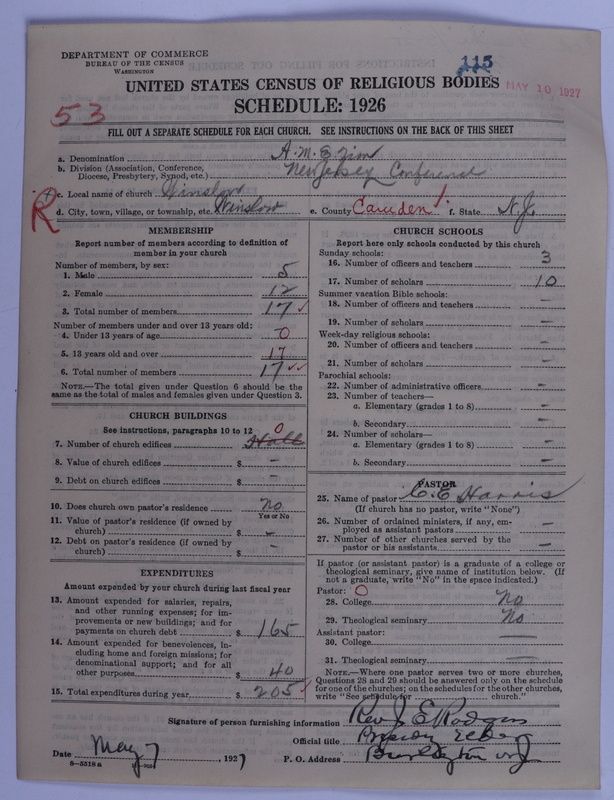 DEPARTMENT OF COMMERCE
BUREAU OF THE CENSUS
WASHINGTON
115
MAY 10 1927
UNITED STATES CENSUS OF RELIGIOUS BODIES
SCHEDULE: 1926
53
FILL OUT A SEPARATE SCHEDULE FOR EACH CHURCH. SEE INSTRUCTIONS ON THE BACK OF THIS SHEET
a. Denomination A.M.E. Zion
b. Division (Association, Conference, Diocese, Presbytery, Synod, etc.) New Jersey Conference
c. Local name of church Winslow
R
d. City, town, village, or township, etc. Winslow e. County Camden f. State N.J.
MEMBERSHIP
Report number of members according to definition of
member in your church
Number of members, by sex:
1. Male 5
2. Female 12
3. Total number of members 17 ✓
Number of members under and over 13 years old:
4. Under 13 years of age 0
5. 13 years old and over 17
6. Total number of members 17 ✓✓
NOTE.—The total given under Question 6 should be the
same as the total of males and females given under Question 3.
CHURCH BUILDINGS
See instructions, paragraphs 10 to 12
7. Number of church edifices Hall 0
8. Value of church edifices $ –
9. Debt on church edifices $ –
10. Does church own pastor's residence No
Yes or No
11. Value of pastor's residence (if owned by
church) $ –
12. Debt on pastor's residence (if owned by
church) $ –
EXPENDITURES
Amount expended by your church during last fiscal year
13. Amount expended for salaries, repairs,
and other running expenses; for im-
provements or new buildings; and for
payments on church debt $ 165
14. Amount expended for benevolences, in-
cluding home and foreign missions; for
denominational support; and for all
other purposes $ 40
15. Total expenditures during year $ 205 ✓
CHURCH SCHOOLS
Report here only schools conducted by this church
Sunday schools:
16. Number of officers and teachers 3
17. Number of scholars 10
Summer vacation Bible schools:
18. Number of officers and teachers –
19. Number of scholars –
Week-day religious schools:
20. Number of officers and teachers –
21. Number of scholars –
Parochial schools:
22. Number of administrative officers –
23. Number of teachers—
a. Elementary (grades 1 to 8) –
b. Secondary –
24. Number of scholars—
a. Elementary (grades 1 to 8) –
b. Secondary –
PASTOR
25. Name of pastor C. C. Harris
(If church has no pastor, write "None")
26. Number of ordained ministers, if any, em-
ployed as assistant pastors –
27. Number of other churches served by the
pastor or his assistants –
If pastor (or assistant pastor) is a graduate of a college or
theological seminary, give name of institution below. (If
not a graduate, write "No" in the space indicated.)
Pastor: O
28. College No
29. Theological seminary No
Assistant pastor: —
30. College
31. Theological seminary —
NOTE.—Where one pastor serves two or more churches,
Questions 28 and 29 should be answered only on the schedule
for one of the churches; on the schedules for the other churches,
write "See schedule for church."
Signature of person furnishing information Rev J E Rodgers
Official title Presiding Elder
Date May 7, 1927 P. O. Address Burlington NJ
8—5318 a